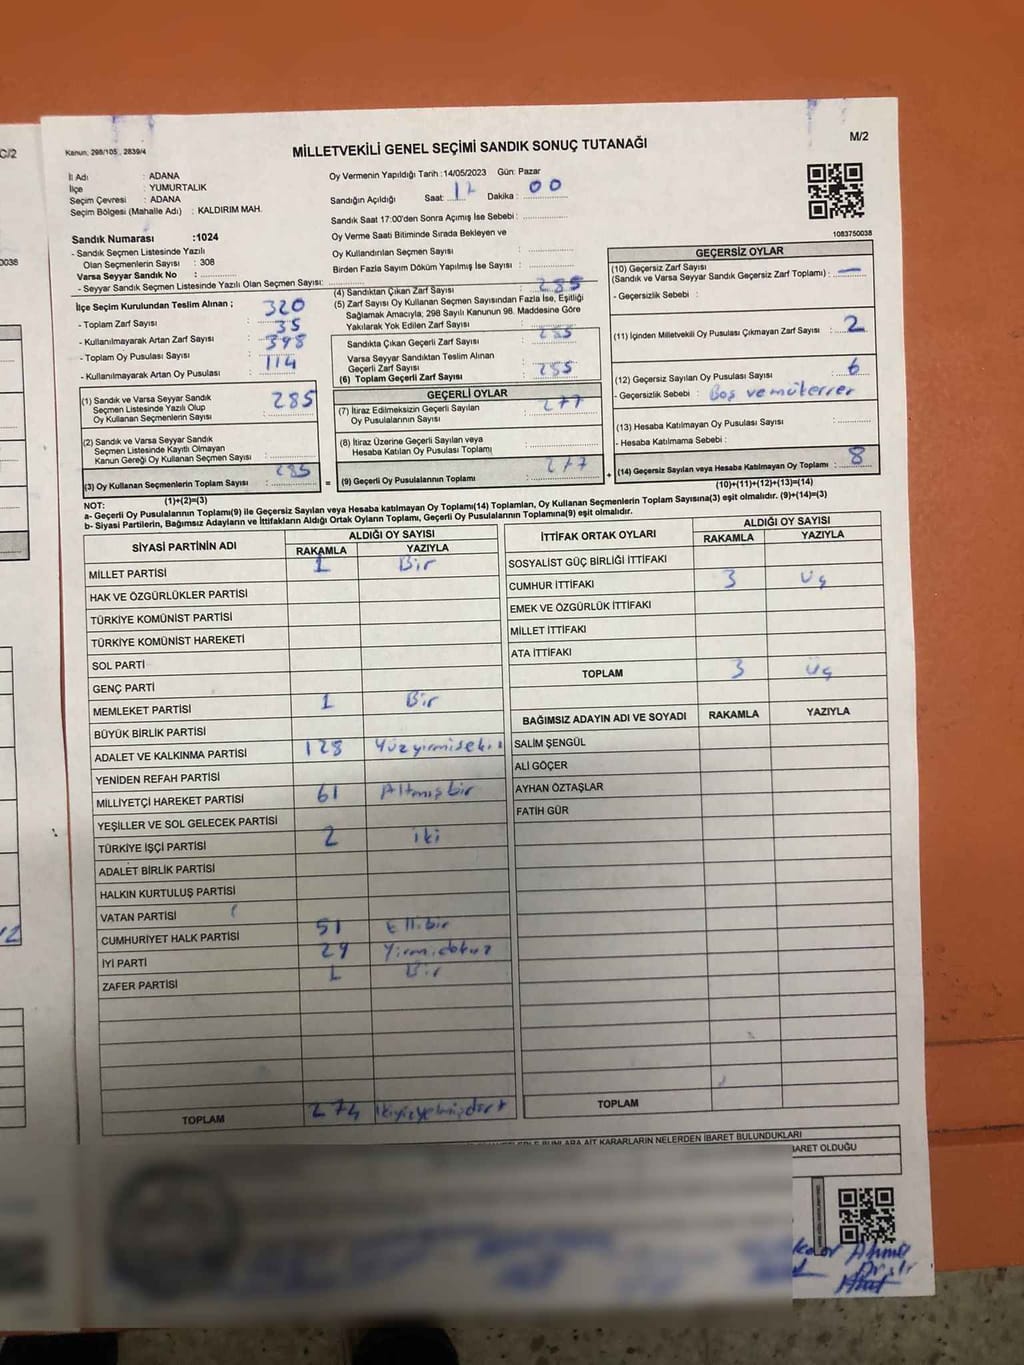 C/2
0038
12
Kanun, 298/105 , 2839/4
M/2
MİLLETVEKİLİ GENEL SEÇİMİ SANDIK SONUÇ TUTANAĞI
İl Adı : ADANA
İlçe : YUMURTALIK
Seçim Çevresi : ADANA
Seçim Bölgesi (Mahalle Adı) : KALDIRIM MAH.
Sandık Numarası :1024
- Sandık Seçmen Listesinde Yazılı
Olan Seçmenlerin Sayısı : 308
Varsa Seyyar Sandık No :
- Seyyar Sandık Seçmen Listesinde Yazılı Olan Seçmen Sayısı:
Oy Vermenin Yapıldığı Tarih :14/05/2023 Gün: Pazar
Sandığın Açıldığı Saat: Dakika : 00
Sandık Saat 17:00'den Sonra Açımış İse Sebebi :
Oy Verme Saati Bitiminde Sırada Bekleyen ve
Oy Kullandırılan Seçmen Sayısı :
Birden Fazla Sayım Döküm Yapılmış İse Sayısı :
1083750038
İlçe Seçim Kurulundan Teslim Alınan ;
- Toplam Zarf Sayısı : 320
- Kullanılmayarak Artan Zarf Sayısı : 35
- Toplam Oy Pusulası Sayısı : 398
- Kullanılmayarak Artan Oy Pusulası : 114
(1) Sandık ve Varsa Seyyar Sandık
Seçmen Listesinde Yazılı Olup
Oy Kullanan Seçmenlerin Sayısı : 285
(2) Sandık ve Varsa Seyyar Sandık
Seçmen Listesinde Kayıtlı Olmayan
Kanun Gereği Oy Kullanan Seçmen Sayısı :
(3) Oy Kullanan Seçmenlerin Toplam Sayısı : 285
(1)+(2)=(3)
(4) Sandıktan Çıkan Zarf Sayısı : 285
(5) Zarf Sayısı Oy Kullanan Seçmen Sayısından Fazla İse, Eşitliği
Sağlamak Amacıyla, 298 Sayılı Kanunun 98. Maddesine Göre
Yakılarak Yok Edilen Zarf Sayısı :
Sandıkta Çıkan Geçerli Zarf Sayısı : 285
Varsa Seyyar Sandıktan Teslim Alınan
Geçerli Zarf Sayısı :
(6) Toplam Geçerli Zarf Sayısı : 285
=
GEÇERLİ OYLAR
(7) İtiraz Edilmeksizin Geçerli Sayılan
Oy Pusulalarının Sayısı : 277
(8) İtiraz Üzerine Geçerli Sayılan veya
Hesaba Katılan Oy Pusulası Toplamı :
(9) Geçerli Oy Pusulalarının Toplamı : 277
+
GEÇERSİZ OYLAR
(10) Geçersiz Zarf Sayısı
(Sandık ve Varsa Seyyar Sandık Geçersiz Zarf Toplamı) : —
- Geçersizlik Sebebi :
(11) İçinden Milletvekili Oy Pusulası Çıkmayan Zarf Sayısı : 2
(12) Geçersiz Sayılan Oy Pusulası Sayısı : 6
- Geçersizlik Sebebi : Boş ve mükerrer
(13) Hesaba Katılmayan Oy Pusulası Sayısı :
- Hesaba Katılmama Sebebi :
(14) Geçersiz Sayılan veya Hesaba Katılmayan Oy Toplamı : 8
(10)+(11)+(12)+(13)=(14)
NOT:
a- Geçerli Oy Pusulalarının Toplamı(9) ile Geçersiz Sayılan veya Hesaba Katılmayan Oy Toplamı(14) Toplamları, Oy Kullanan Seçmenlerin Toplam Sayısına(3) eşit olmalıdır. (9)+(14)=(3)
b- Siyasi Partilerin, Bağımsız Adayların ve İttifakların Aldığı Ortak Oyların Toplamı, Geçerli Oy Pusulalarının Toplamına(9) eşit olmalıdır.
SİYASİ PARTİNİN ADI ALDIĞI OY SAYISI
RAKAMLA YAZIYLA
MİLLET PARTİSİ 1 Bir
HAK VE ÖZGÜRLÜKLER PARTİSİ
TÜRKİYE KOMÜNİST PARTİSİ
TÜRKİYE KOMÜNİST HAREKETİ
SOL PARTİ
GENÇ PARTİ
MEMLEKET PARTİSİ 1 Bir
BÜYÜK BİRLİK PARTİSİ
ADALET VE KALKINMA PARTİSİ 128 Yüzyirmisekiz
YENİDEN REFAH PARTİSİ
MİLLİYETÇİ HAREKET PARTİSİ 61 Altmışbir
YEŞİLLER VE SOL GELECEK PARTİSİ
TÜRKİYE İŞÇİ PARTİSİ 2 iki
ADALET BİRLİK PARTİSİ
HALKIN KURTULUŞ PARTİSİ
VATAN PARTİSİ
CUMHURİYET HALK PARTİSİ 51 Ellibir
İYİ PARTİ 29 Yirmidokuz
ZAFER PARTİSİ 1 Bir
TOPLAM 274 ikiyüzyetmişdört
İTTİFAK ORTAK OYLARI ALDIĞI OY SAYISI
RAKAMLA YAZIYLA
SOSYALİST GÜÇ BİRLİĞİ İTTİFAKI
CUMHUR İTTİFAKI 3 üç
EMEK VE ÖZGÜRLÜK İTTİFAKI
MİLLET İTTİFAKI
ATA İTTİFAKI
TOPLAM 3 üç
BAĞIMSIZ ADAYIN ADI VE SOYADI RAKAMLA YAZIYLA
SALİM ŞENGÜL
ALİ GÖÇER
AYHAN ÖZTAŞLAR
FATİH GÜR
TOPLAM
BUNLARA AİT KARARLARIN NELERDEN İBARET BULUNDUKLARI
BARET OLDUĞU
Ahmet